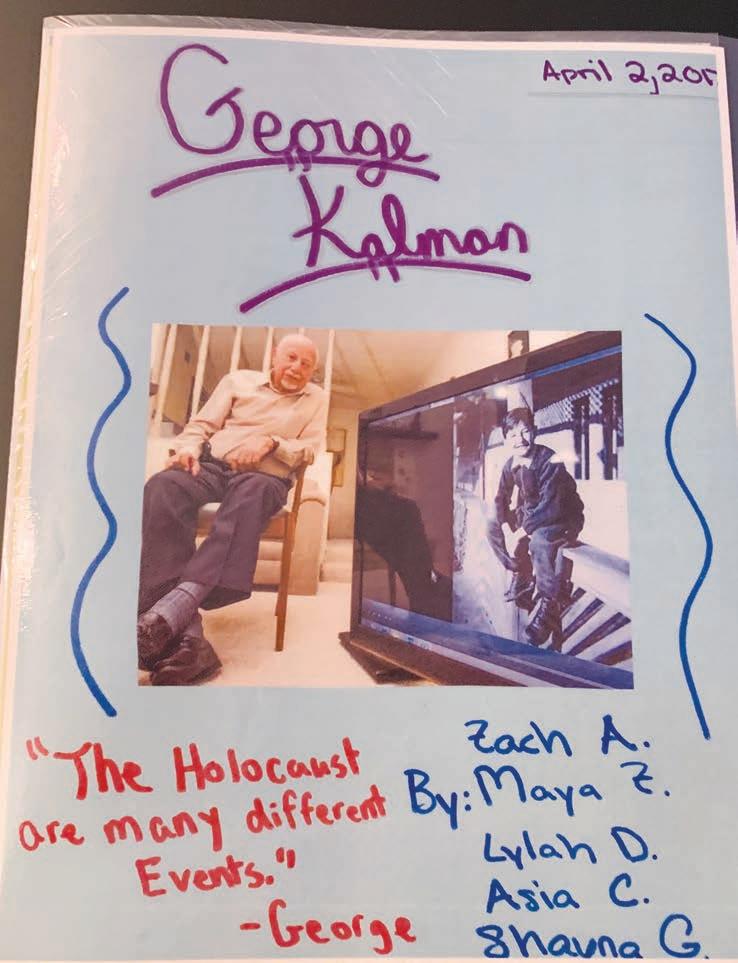 April 2, 201
George
Kalman
"The Holocaust
are many different
Events."
-George
Zach A.
By: Maya Z.
Lylah D.
Asia C.
Shauna G.